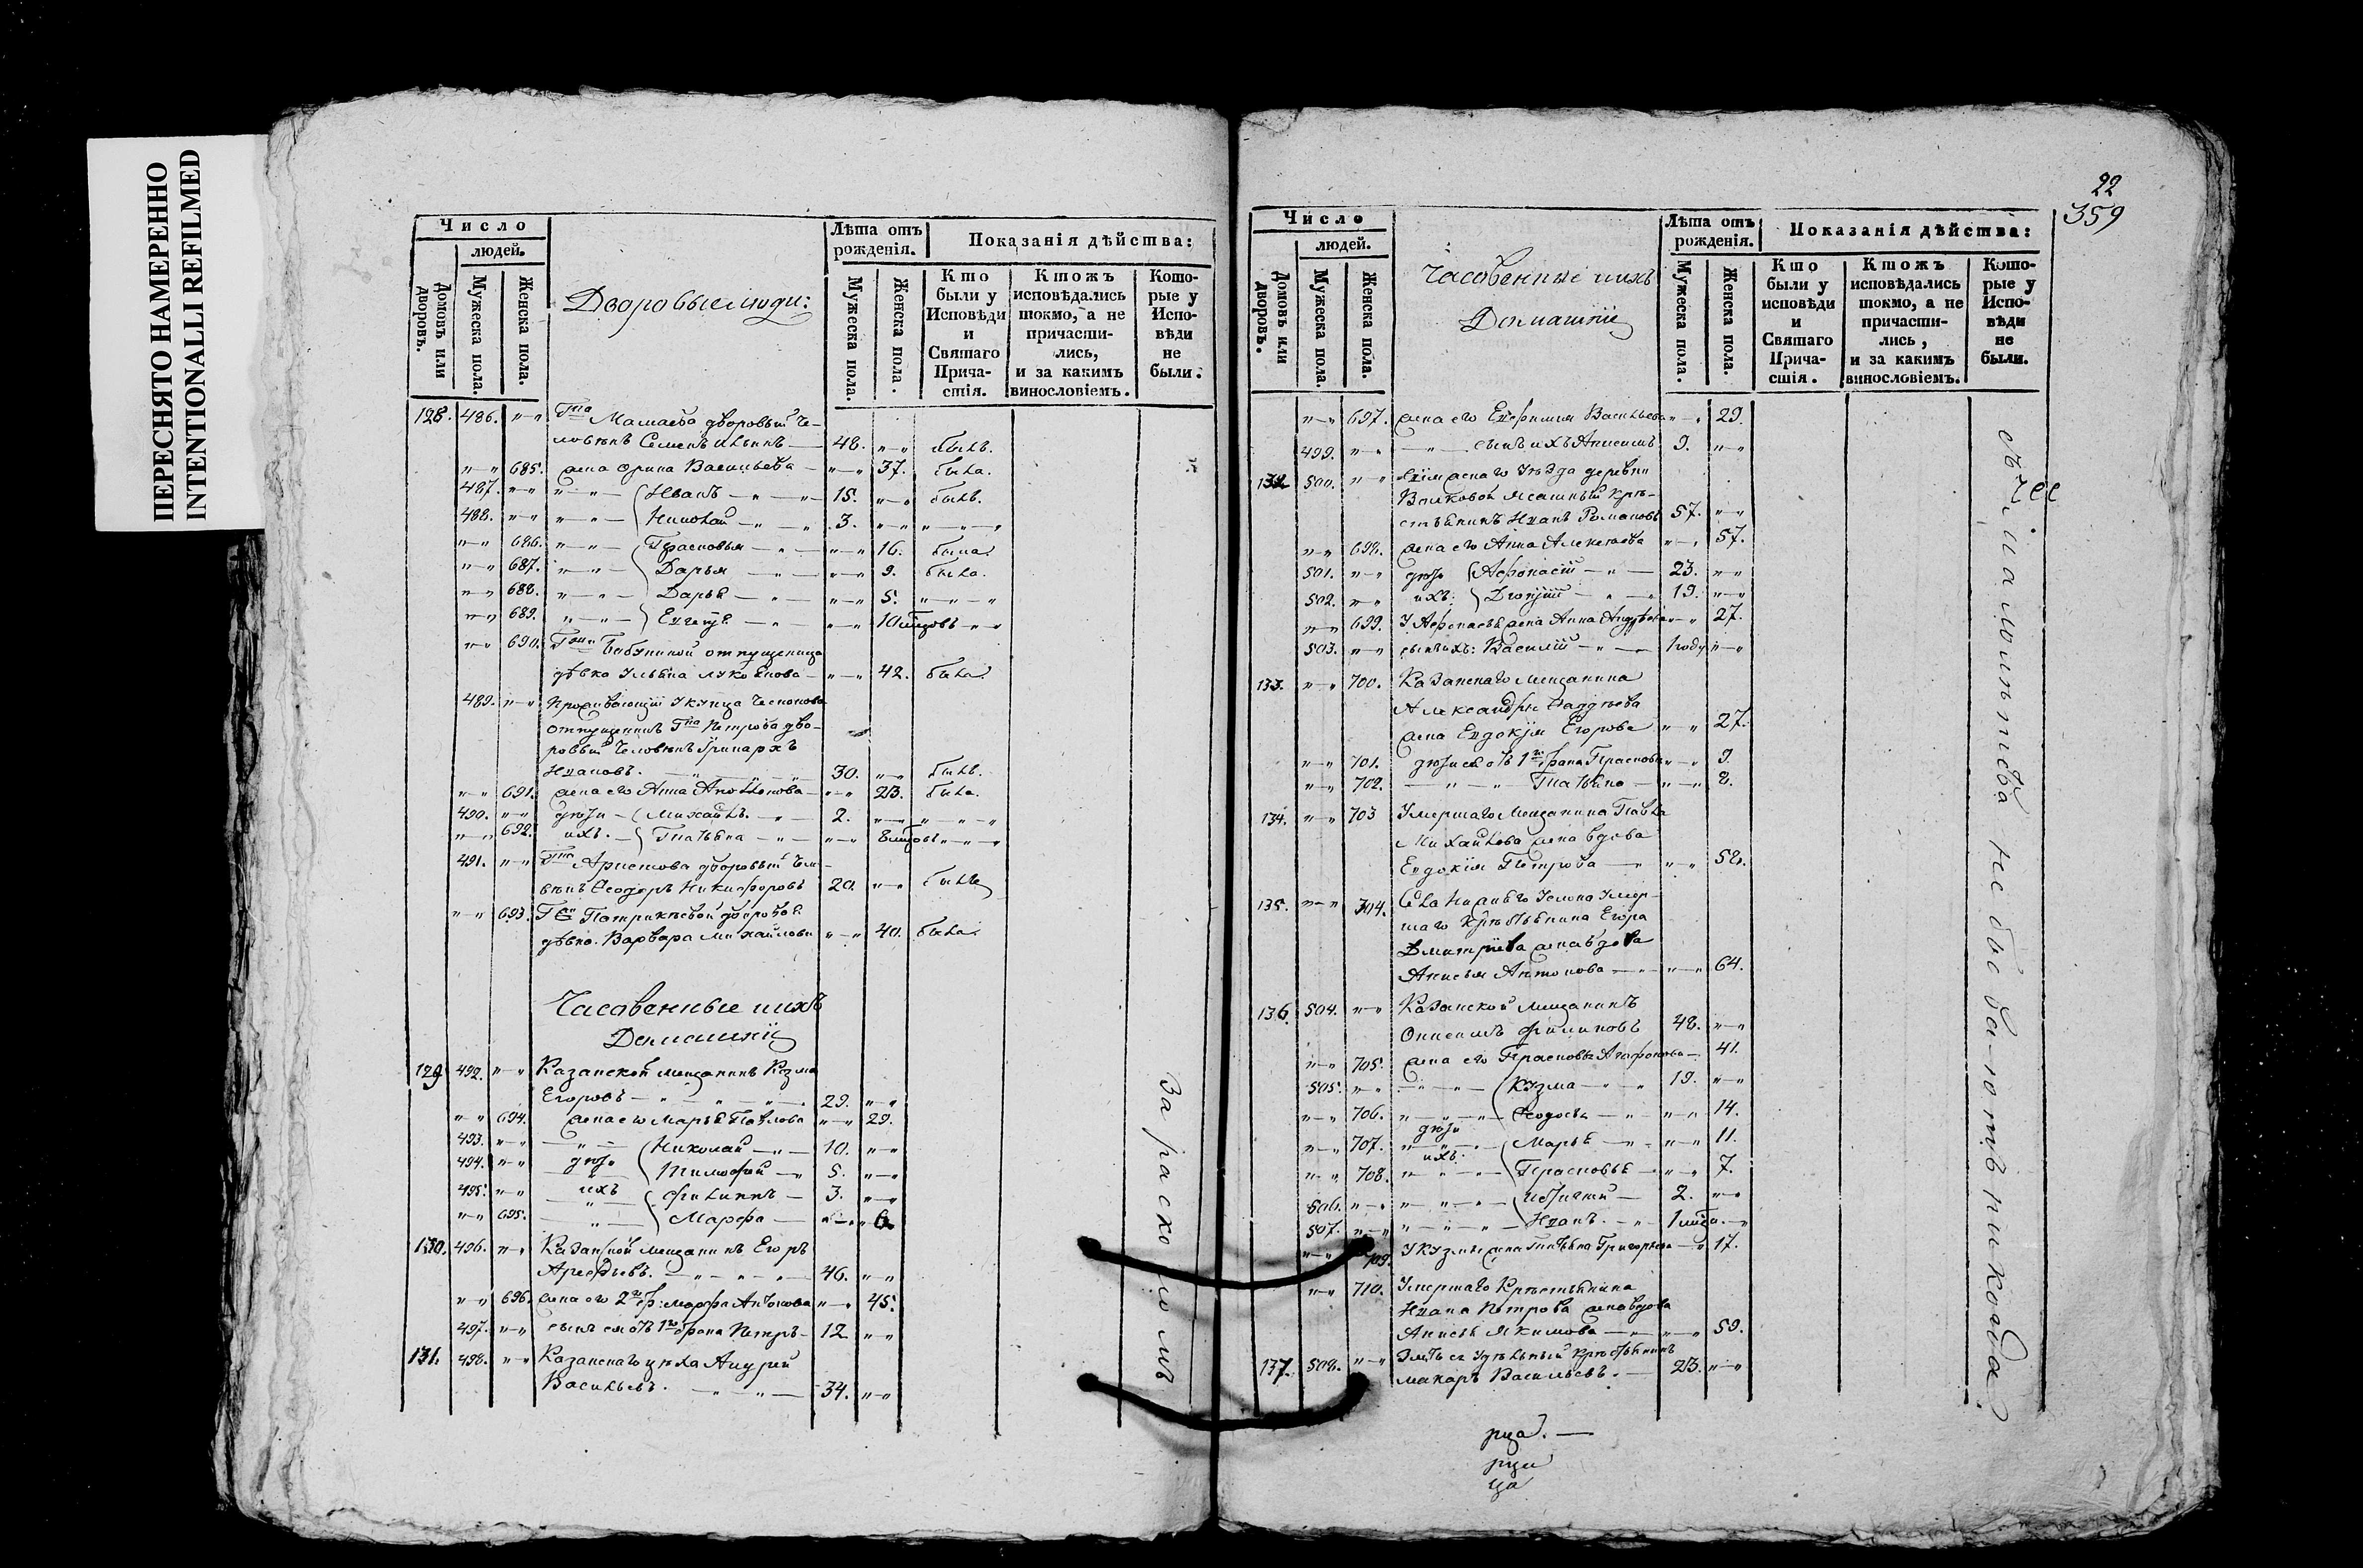 ПЕРЕСНЯТО НАМЕРЕННО
INTENTIONALLI REFILMED
Число
людей.
Домовъ или дворовъ.
Мужеска пола.
Женска пола.
Дворовые люди:
Лѣта отъ рожденія.
Мужеска пола.
Женска пола.
Показанія дѣйства:
Кто были у Исповѣди и Святаго Причастія.
Ктожъ исповѣдались токмо, а не причастились, и за какимъ винословіемъ.
Которые у Исповѣди не были.
128. 486. "—" Гна Мамаева дворовый че-
ловѣкъ Семенъ Ильинъ — 48. "—" былъ.
"—" 685. жена Орина Васильева — "—" 37. была.
487. "—" "—"— Иванъ — 15. "—" былъ.
488. "—" "—"— Николай — 3. "—" "—"—"
"—" 686. "—"— Прасковья — "—" 16. была.
"—" 687. "—"— Дарья — "—" 9. была.
"—" 688. "—"— Дарья — "—" 5. "—"—"
"—" 689. "—"— — "—" 10 мцовъ "—"
"—" 690. Гжи Бабкиной отпущеница
дѣвка Ульяна — "—" 42. была.
489. "—" Проживающій у купца
отпущенникъ Гна Петрова дво-
ровый человѣкъ Иринархъ
Ивановъ. — 30. "—" былъ.
"—" 691. жена его Анна — "—" 23. была.
490. "—" дѣти — Михайлъ. — 2. "—" "—"—"
"—" 692. ихъ. — Татьяна — "—" 8 мцовъ "—"
491. "—" Гна Аристова дворовый чело-
вѣкъ Ѳеодоръ Никифоровъ 20. "—" былъ
"—" 693. Гжи Патрикѣевой дворовая
дѣвка Варвара Михайлова "—" 40. была.
Часовенные и ихъ
Домашніи
129. 492. "—" Казанской мещанинъ Козма
Егоровъ — 29. "—"
"—" 694. жена его Марья Павлова "—" 29.
493. "—" — Николай — 10. "—"
494. "—" дѣти Тимофей — 5. "—"
495. "—" ихъ Филиппъ — 3. "—"
"—" 695. — Марфа — "—" 6.
130. 496. "—" Казанской мещанинъ Егоръ
Арефьевъ. — 46. "—"
"—" 696. жена его 2го бр: Марфа Антонова "—" 45.
497. "—" сынъ его отъ 1го брака Петръ — 12 "—"
131. 498. "—" Казанскаго цѣха Андрей
Васильевъ. — 34. "—"
За расколомъ
22
359
Число
людей.
Домовъ или дворовъ.
Мужеска пола.
Женска пола.
Часовенные и ихъ
Домашніи
Лѣта отъ рожденія.
Мужеска пола.
Женска пола.
Показанія дѣйства:
Кто были у исповѣди и Святаго Причастія.
Ктожъ исповѣдались токмо, а не причастились, и за какимъ винословіемъ.
Которые у Исповѣди не были.
"—" 697. жена его Евфимія Васильева "—" 29.
499. "—" — сынъ ихъ Анисимъ 9. "—"
132. 500. "—" уѣзда деревни
Волковой ясашный кре-
стьянинъ Иванъ Романовъ 57. "—"
"—" 698. жена его Анна Алексѣева "—" 57.
501. "—" дѣти Афонасій — 23. "—"
502. "—" ихъ: Дмитрій — 19. "—"
"—" 699. У Афонасья жена Анна Андреева "—" 27.
503. "—" сынъ ихъ: Василій — 1 году "—"
133. "—" 700. Казанскаго мещанина
Александра Фаддѣева
жена Евдокія Егорова "—" 27.
"—" 701. дѣти ея отъ 1го брака Прасковья "—" 9.
"—" 702. — Татьяна — "—" 8.
134. "—" 703 Умершаго мещанина Павла
Михайлова жена вдова
Евдокія Петрова — "—" 58.
135. "—" 704. умер-
шаго крестьянина Егора
Дмитріева жена вдова
Анисья Антонова — "—" 64.
136. 504. "—" Казанской мещанинъ
Онисимъ Филиповъ 48. "—"
"—" 705. жена его Прасковья Агафонова — 41.
505. "—" "—"— Кузма — 19. "—"
"—" 706. "—"— Ѳеодосья — "—" 14.
"—" 707. дѣти Марья — "—" 11.
"—" 708. ихъ. Прасковья — "—" 7.
506. "—" "—"— — 2. "—"
507. "—" "—"— Иванъ. — 1 мцъ. —"
"—" 709. У Кузмы жена Татьяна Григорьева — 17.
"—" 710. Умершаго крестьянина
Ивана Петрова жена вдова
Анисья Якимова — "—" 59.
137. 508. "—" Зять ея удѣльный крестьянинъ
Макаръ Васильевъ. — 23. "—"
никогда не бываютъ
рца. —
рцы
ца